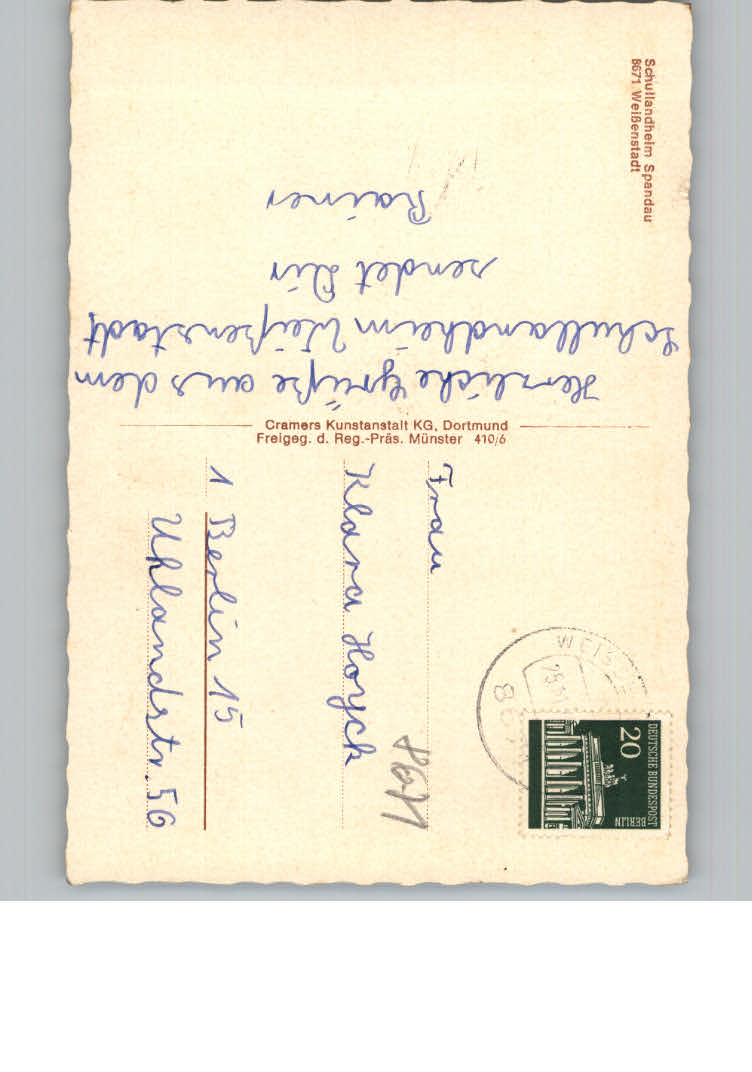 Schullandheim Spandau
8671 Weißenstadt
Herzliche Grüße aus dem
Schullandheim Weißenstadt
sendet Dir
Rainer
Cramers Kunstanstalt KG, Dortmund
Freigeg. d. Reg.-Präs. Münster 410/6
DEUTSCHE BUNDESPOST
BERLIN
20
Frau
Klara Hoyck
1 Berlin 15
Uhlandstr. 56
8671